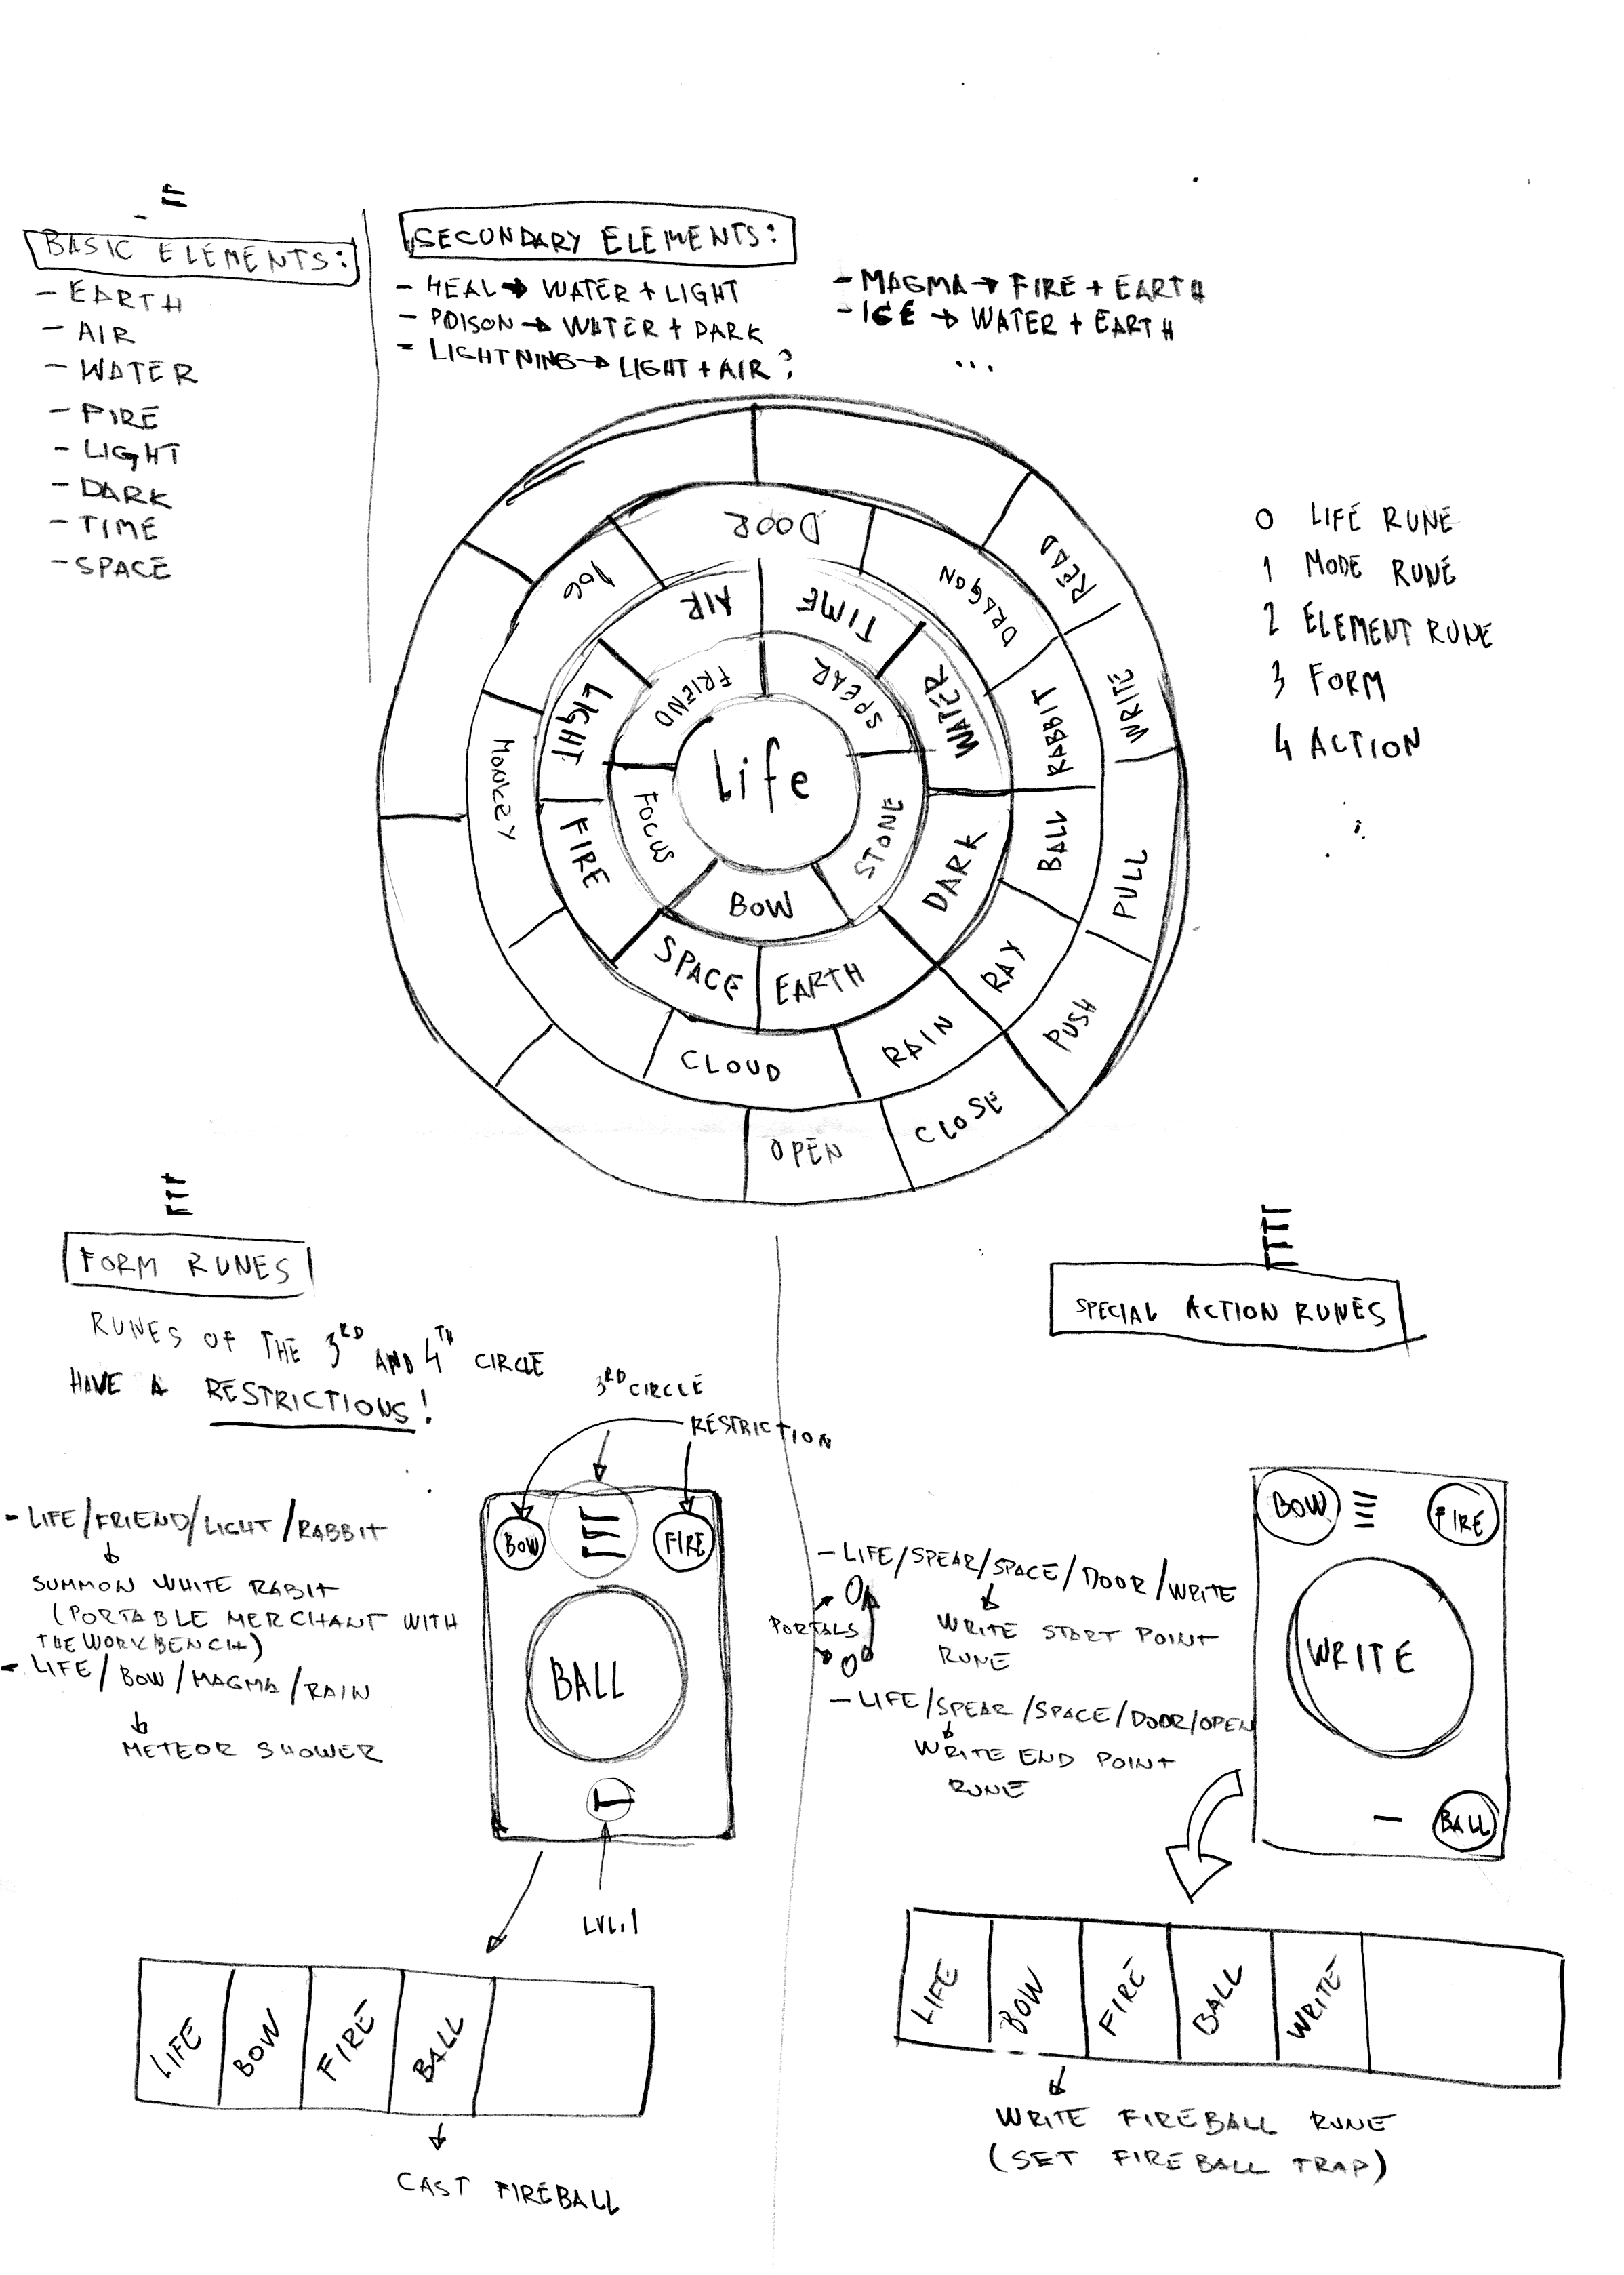 BASIC ELEMENTS:
- EARTH
- AIR
- WATER
- FIRE
- LIGHT
- DARK
- TIME
- SPACE
SECONDARY ELEMENTS:
- HEAL → WATER + LIGHT
- POISON → WATER + DARK
- LIGHTNING → LIGHT + AIR?
- MAGMA → FIRE + EARTH
- ICE → WATER + EARTH
...
0 LIFE RUNE
1 MODE RUNE
2 ELEMENT RUNE
3 FORM
4 ACTION
Life
FRIEND
SPEAR
STONE
BOW
FOCUS
AIR
TIME
WATER
DARK
EARTH
SPACE
FIRE
LIGHT
DOG
DOOR
DRAGON
RABBIT
BALL
RAY
RAIN
CLOUD
MONKEY
READ
WRITE
PULL
PUSH
CLOSE
OPEN
FORM RUNES
RUNES OF THE 3RD AND 4TH CIRCLE
HAVE A RESTRICTIONS!
3RD CIRCLE
RESTRICTION
- LIFE/FRIEND/LIGHT/RABBIT
SUMMON WHITE RABIT
(PORTABLE MERCHANT WITH
THE WORKBENCH)
- LIFE/BOW/MAGMA/RAIN
METEOR SHOWER
BOW
FIRE
BALL
LVL.1
LIFE
BOW
FIRE
BALL
CAST FIREBALL
SPECIAL ACTION RUNES
- LIFE/SPEAR/SPACE/DOOR/WRITE
WRITE START POINT
RUNE
PORTALS
- LIFE/SPEAR/SPACE/DOOR/OPEN
WRITE END POINT
RUNE
BOW
FIRE
WRITE
BALL
LIFE
BOW
FIRE
BALL
WRITE
WRITE FIREBALL RUNE
(SET FIREBALL TRAP)